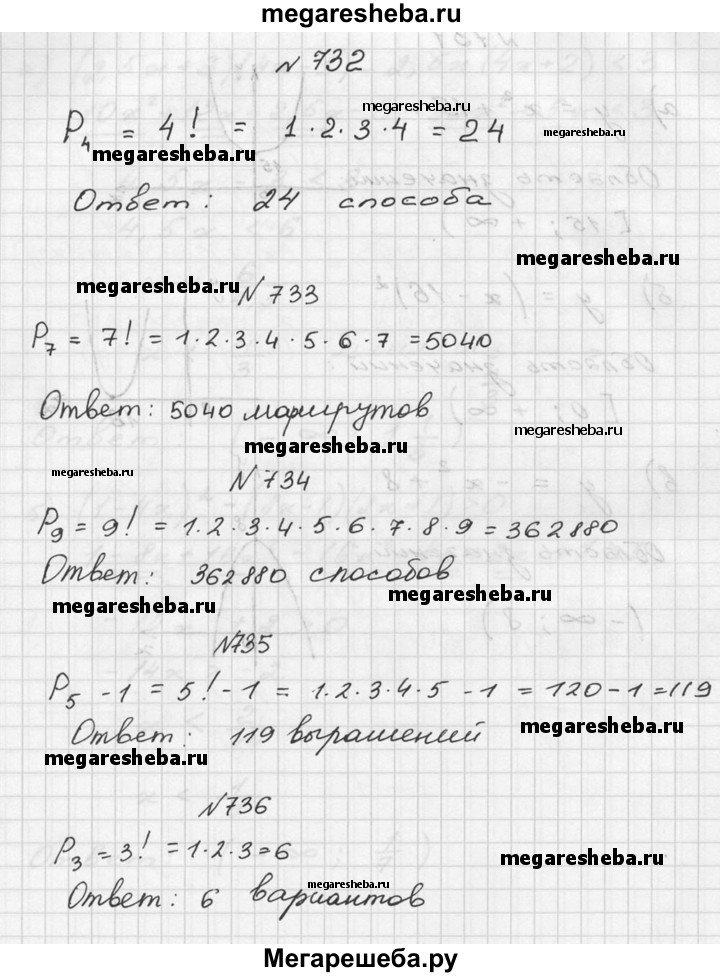 megaresheba.ru
N 732
megaresheba.ru
P₄ = 4! = 1·2·3·4 = 24 megaresheba.ru
megaresheba.ru
Ответ: 24 способа
megaresheba.ru
megaresheba.ru
N 733
P₇ = 7! = 1·2·3·4·5·6·7 = 5040
Ответ: 5040 маршрутов
megaresheba.ru
megaresheba.ru
megaresheba.ru
N 734
P₉ = 9! = 1·2·3·4·5·6·7·8·9 = 362880
Ответ: 362880 способов
megaresheba.ru
megaresheba.ru
N735
P₅ - 1 = 5! - 1 = 1·2·3·4·5 - 1 = 120 - 1 = 119
Ответ: 119 выражений
megaresheba.ru
megaresheba.ru
N736
P₃ = 3! = 1·2·3 = 6
megaresheba.ru
megaresheba.ru
Ответ: 6 вариантов
Мегарешеба.ру